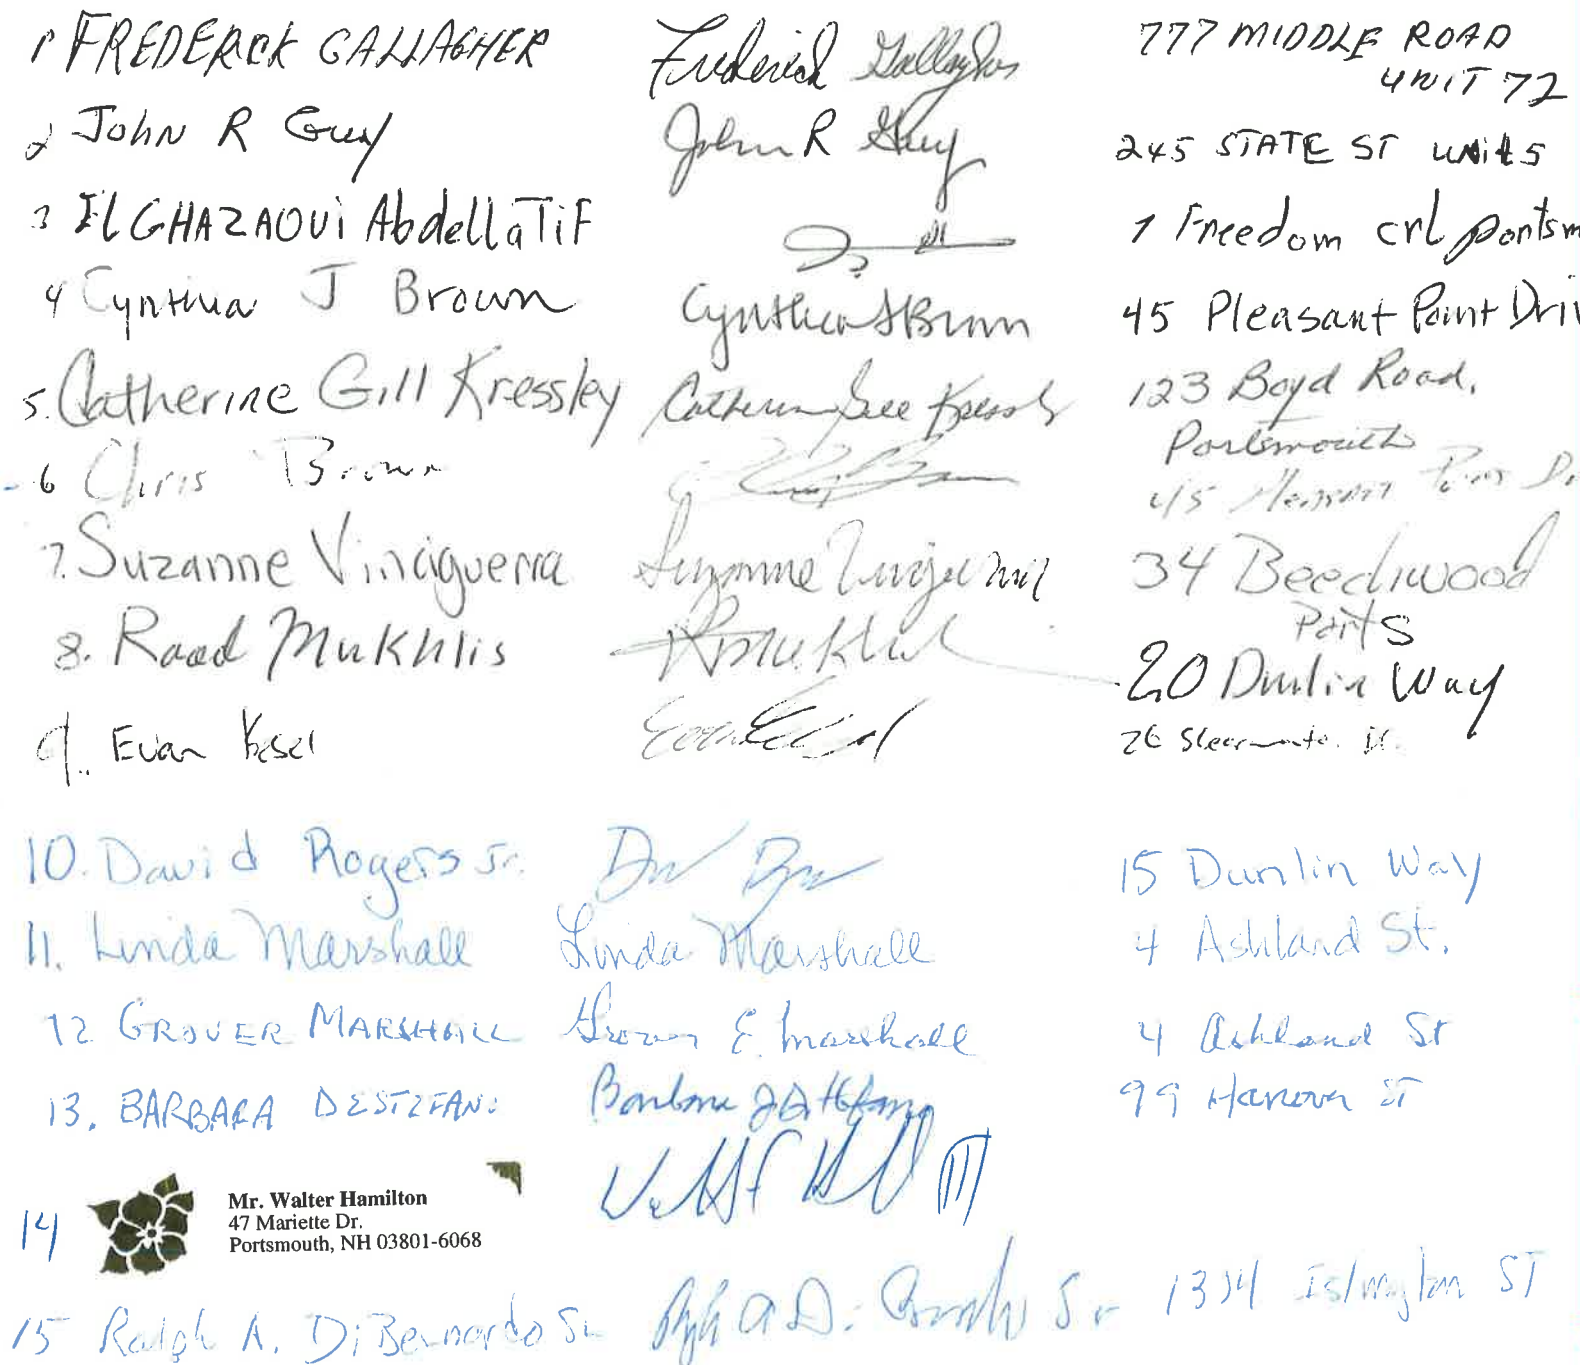 1 FREDERICK GALLAGHER Frederick Gallagher 777 MIDDLE ROAD
UNIT 72
2 John R Guy John R Guy 245 STATE ST unit 5
3 ELGHAZAOUi AbdellaTiF 1 Freedom crl portsm
4 Cynthia J Brown Cynthia J Brown 45 Pleasant Point Driv
5. Catherine Gill Kressley Catherine Gill Kressley 123 Boyd Road,
Portsmouth
6 Chris Brown 45 Pleasant Point D.
7. Suzanne Vinciguerra Suzanne Vinciguerra 34 Beechwood
Ports
8. Raad Mukhlis R Mukhlis 20 Dunlin Way
9. Evan Kesel Evan Kesel 26
10. David Rogers Jr. 15 Dunlin Way
11. Linda Marshall Linda Marshall 4 Ashland St.
12 GROVER MARSHALL Grover E. Marshall 4 Ashland St
13. BARBARA DESTEFANO Barbara J DeStefano 99 Hanover ST
14 Mr. Walter Hamilton
47 Mariette Dr.
Portsmouth, NH 03801-6068
III
15 Ralph A. DiBernardo Sr Ralph A Di Bernardo Sr 1374 Islington ST